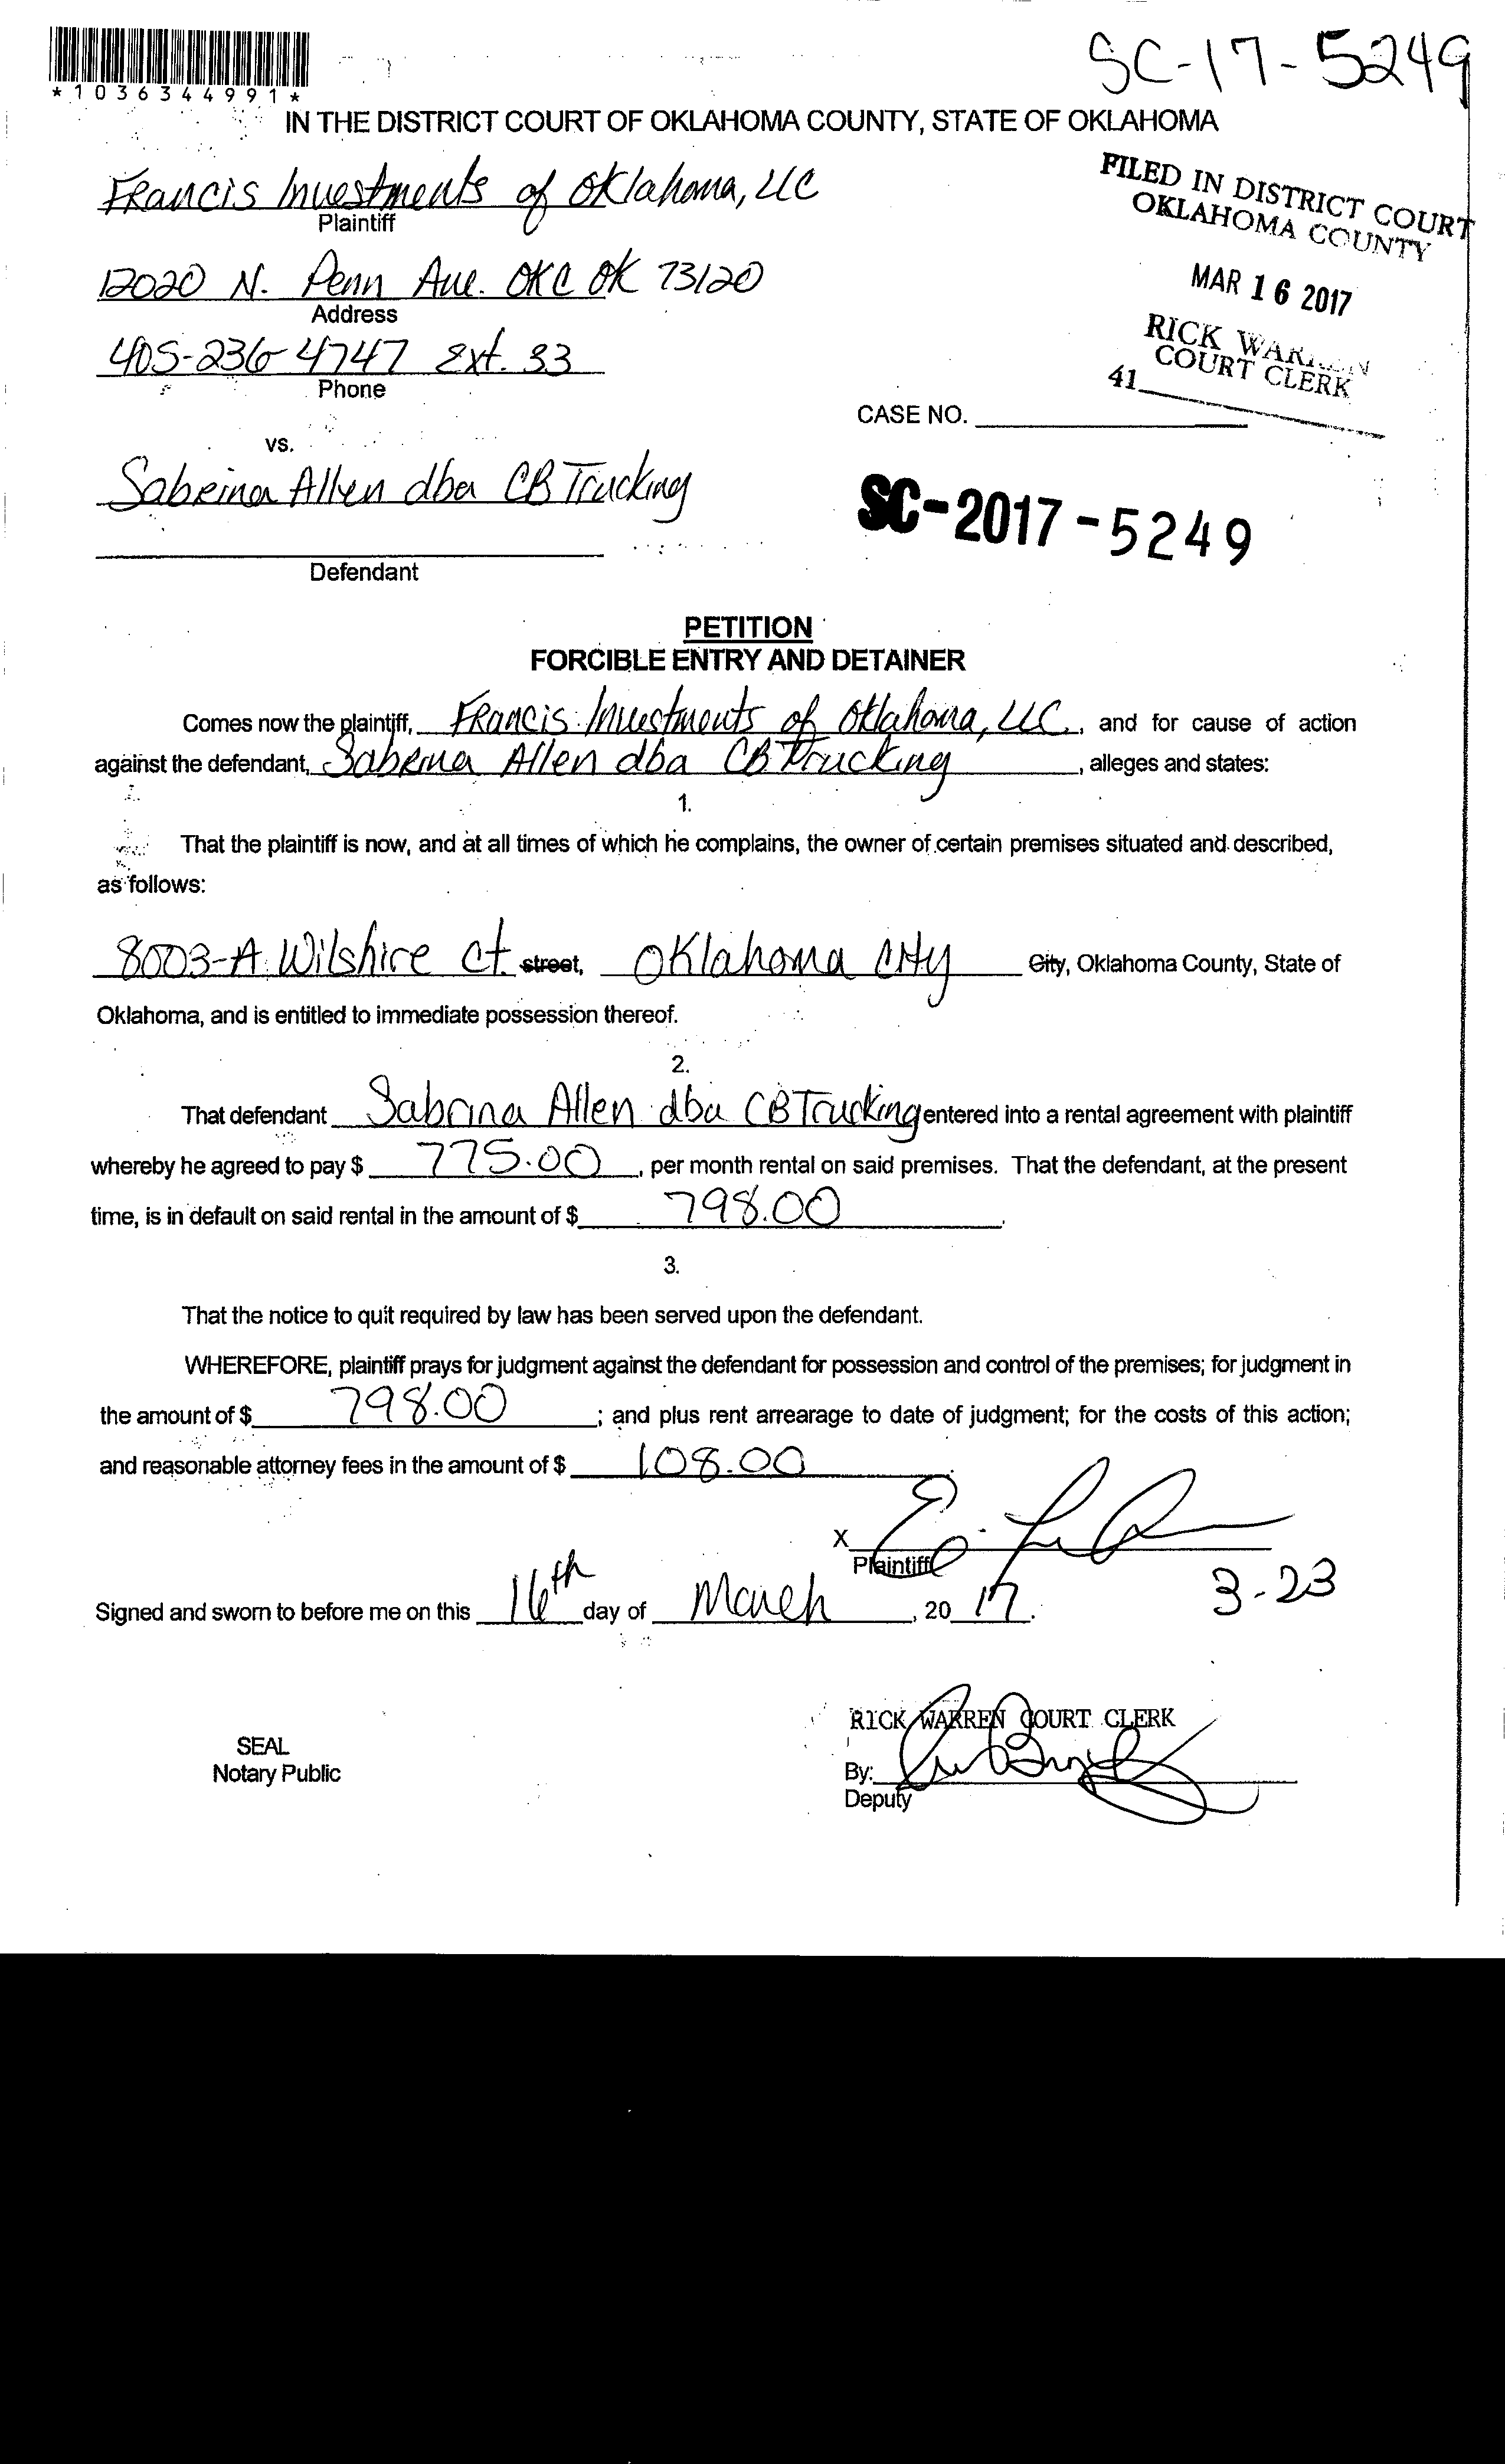 SC-17-5249
*1036344991*
IN THE DISTRICT COURT OF OKLAHOMA COUNTY, STATE OF OKLAHOMA
Francis Investments of Oklahoma, LLC
Plaintiff
FILED IN DISTRICT COURT
OKLAHOMA COUNTY
12020 N. Penn Ave. OKC OK 73120
Address
MAR 16 2017
405-236-4747 Ext. 33
Phone
RICK WARREN
COURT CLERK
41
CASE NO.
vs.
Sabrina Allen dba CB Trucking
SC-2017-5249
Defendant
PETITION
FORCIBLE ENTRY AND DETAINER
Comes now the plaintiff, Francis Investments of Oklahoma, LLC, and for cause of action
against the defendant, Sabrina Allen dba CB Trucking, alleges and states:
1.
That the plaintiff is now, and at all times of which he complains, the owner of certain premises situated and described,
as follows:
8003-A Wilshire Ct. street, Oklahoma City City, Oklahoma County, State of
Oklahoma, and is entitled to immediate possession thereof.
2.
That defendant Sabrina Allen dba CB Trucking entered into a rental agreement with plaintiff
whereby he agreed to pay $ 775.00, per month rental on said premises. That the defendant, at the present
time, is in default on said rental in the amount of $ 798.00.
3.
That the notice to quit required by law has been served upon the defendant.
WHEREFORE, plaintiff prays for judgment against the defendant for possession and control of the premises; for judgment in
the amount of $ 798.00; and plus rent arrearage to date of judgment; for the costs of this action;
and reasonable attorney fees in the amount of $ 108.00.
X
Plaintiff
3-23
Signed and sworn to before me on this 16th day of March, 20 17.
RICK WARREN COURT CLERK
SEAL
Notary Public
By:
Deputy